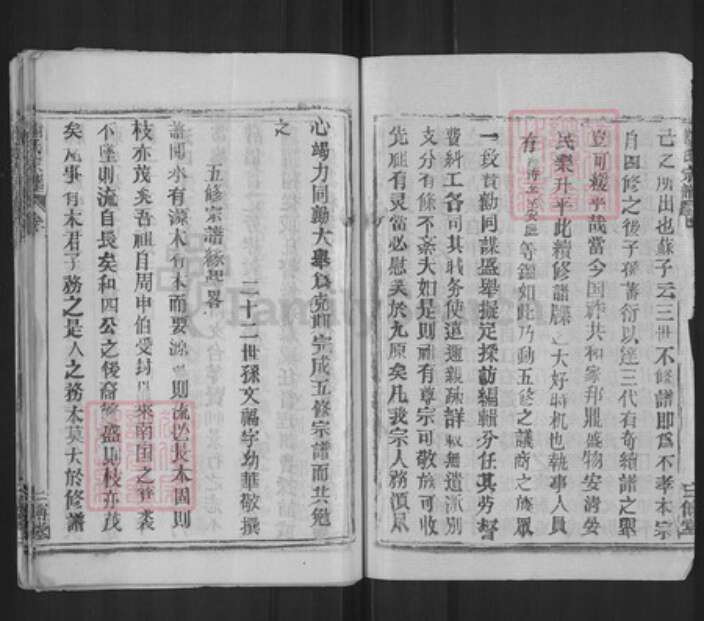 己之所出也蘇子云三世不修譜即為不孝本宗
自四修之後子孫蕃衍以達三代有奇續譜之舉
豈可緩乎哉當今国祚共和家邦鼎盛物安淸晏
民樂升平此續修譜牒之大好時机也執事人員
有 等鑑如此乃動五修之議商之族眾
一致賛勸同謀盛舉擬定採訪編輯分任其勞督
費糾工各司其職务使遠邇親疏詳載無遺派別
支分有條不紊夫如是則祖有尊宗可敬族可收
先祖有灵當必慰矣於九原矣凡我宗人務須眾
心竭力同勷大舉以克期完成五修宗譜而共勉
之
五修宗譜緣起畧
二十二世孫文福字幼華敬撰
譜聞水有源木有本而要源 則流長木固則
枝亦茂矣吾祖自周申伯受封以來南国之 裘
不墜則流自長矣和四公之後裔繁盛則枝亦茂
矣凡事有本君子務之是人之務本莫大於修譜
FamilySearch